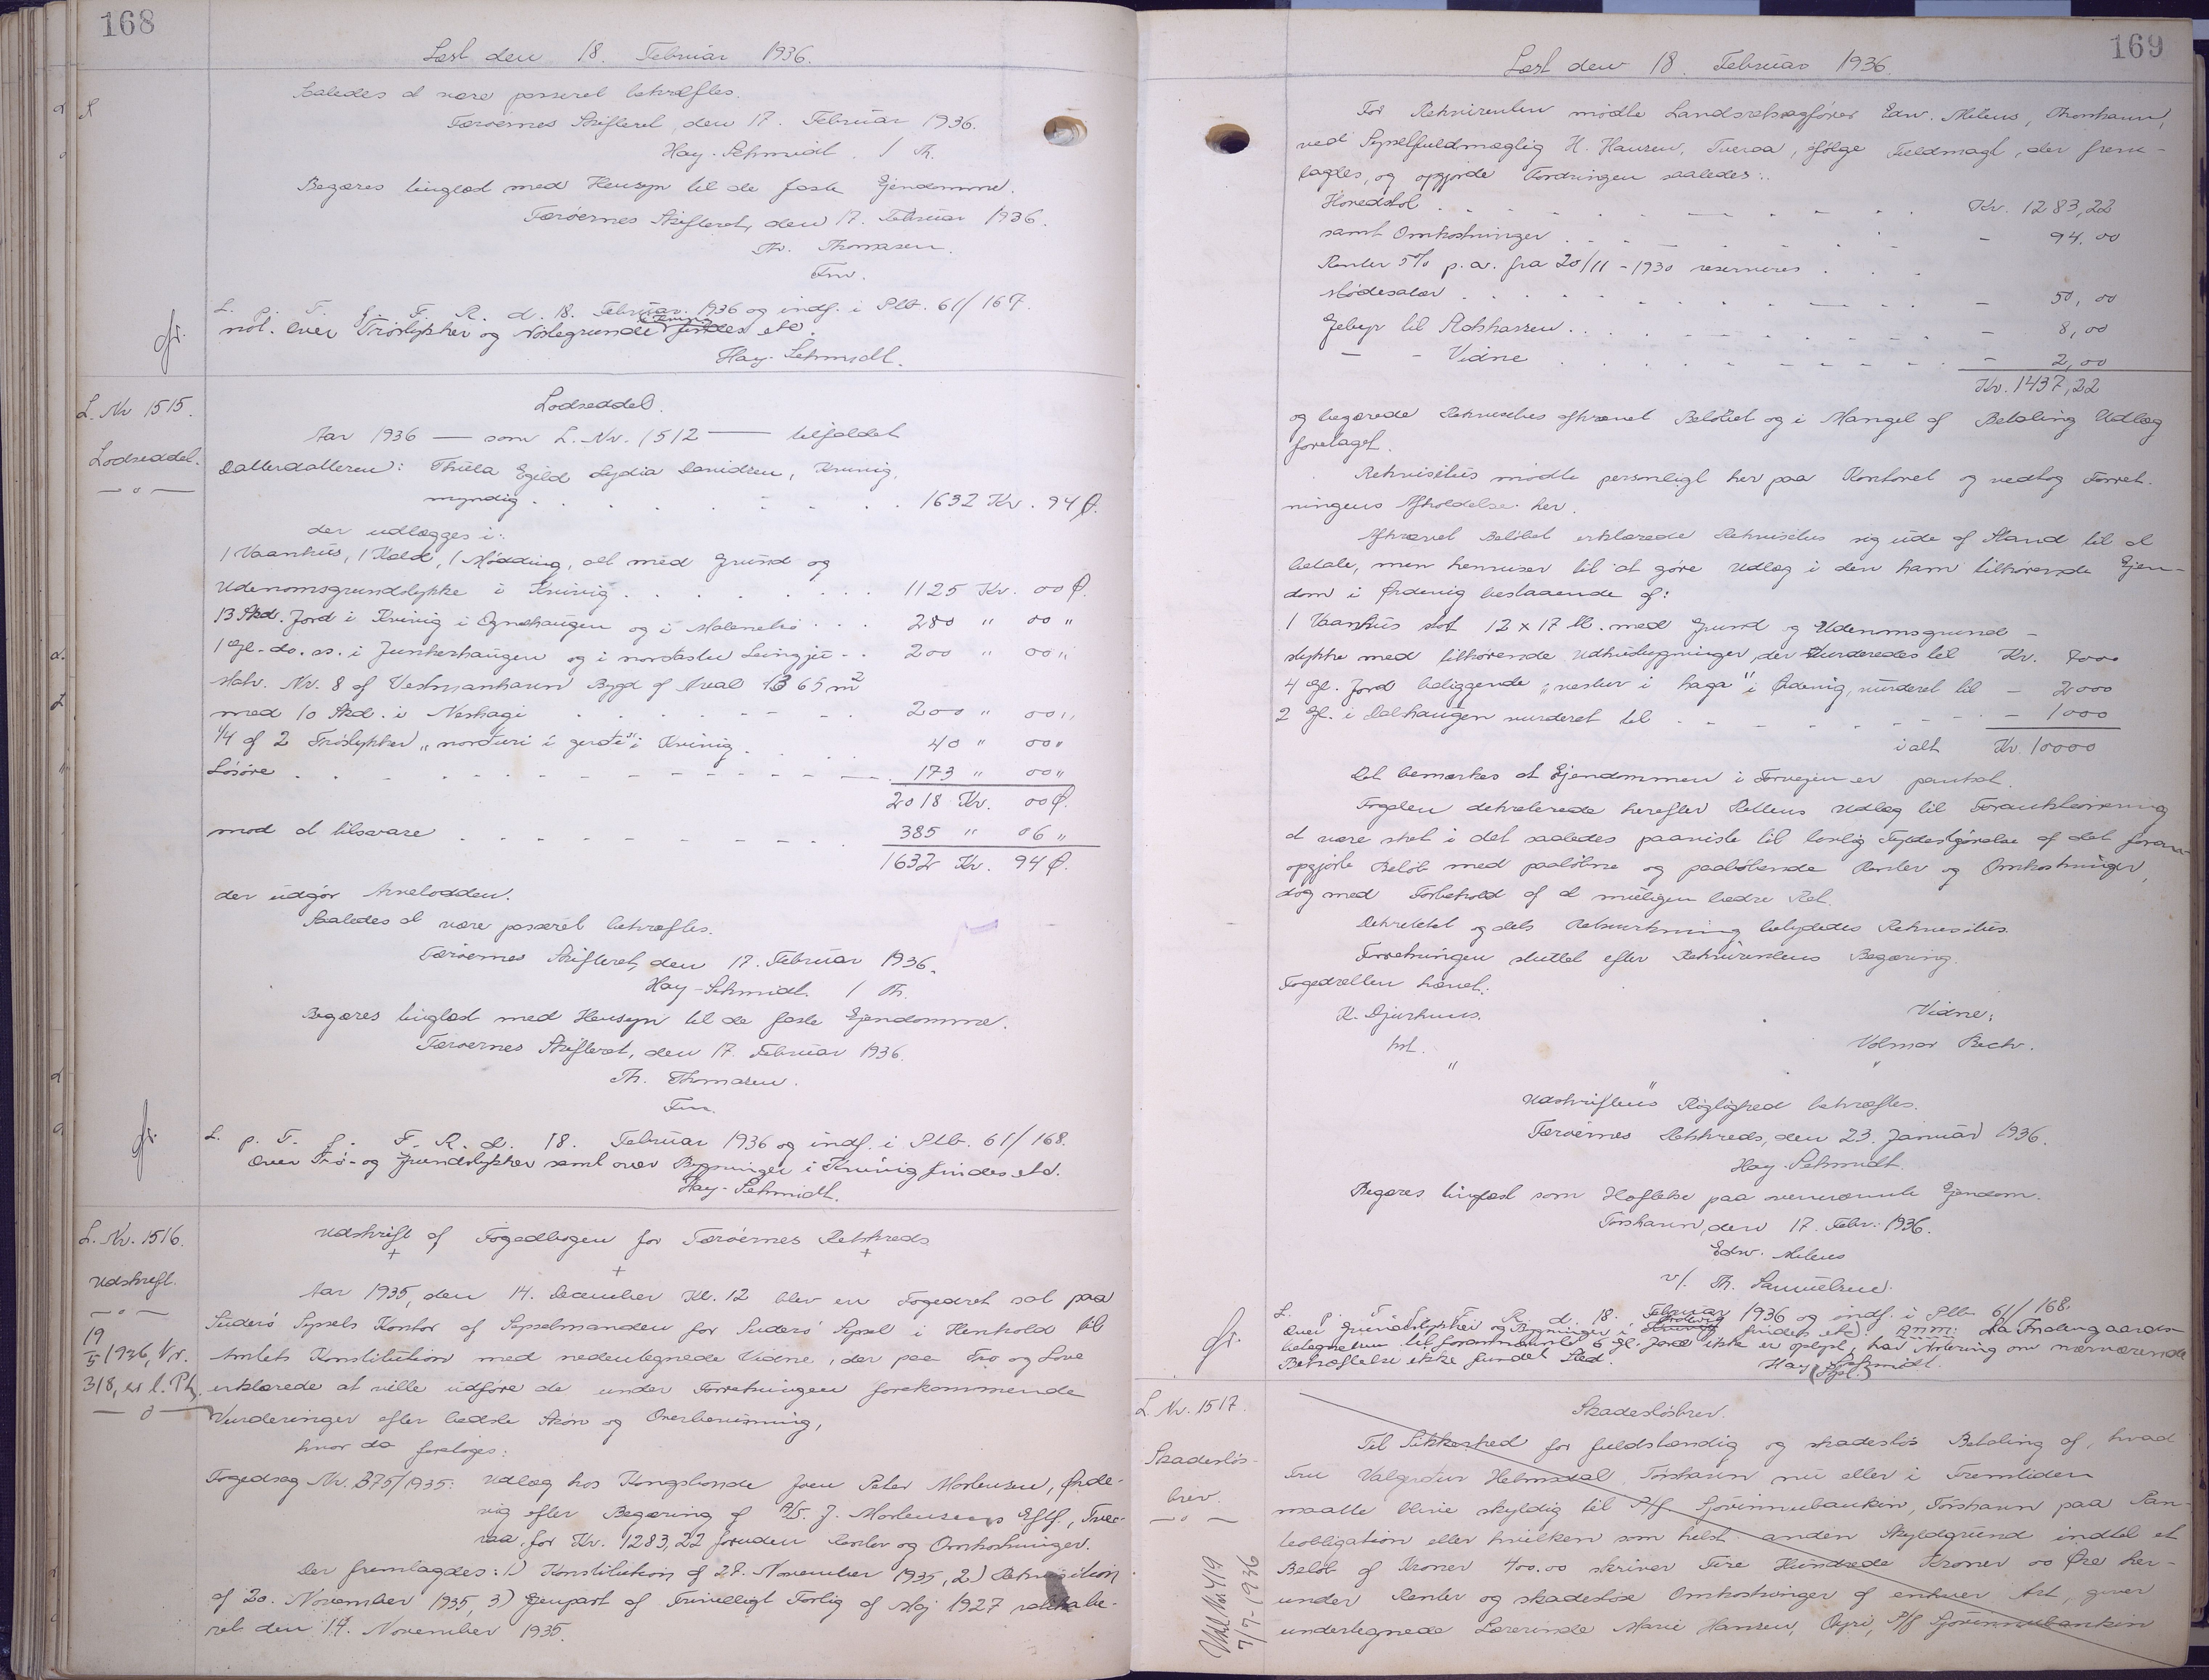 168
Læst den 18. Februar 1936.
Saaledes at være passeret bekræftes.
Færøernes Skifteret, den 17. Februar 1936.
Hay-Schmidt. / Th.
Begæres tinglæst med Hensyn til de faste Ejendomme.
Færøernes Skifteret, den 17. Februar 1936.
Th. Thomasen.
Fm.
L. p. T. f. F. R. d. 18. Februar 1936 og indf. i Pltb. 61/167.
not. over Trøstykker og Nøstegrunde i Kvivig findes etc.
Hay-Schmidt.
L. Nr 1515.
Lodseddel.
Lodseddel.
Aar 1936 — som L. Nr. 1512 — tilfaldet
Datterdatteren: Thula Egild Lydia Davidsen, Kvivig,
myndig . . . . . . . . 1632 Kr. 94 Ø.
der udlægges i:
1 Vaanhus, 1 Kald, 1 Mødding, alt med Grund og
Udenomsgrundstykke i Kvivig . . . . . . . 1125 Kr. 00 Ø.
13 Skd. Jord i Kvivig i Ognehaugen og i . . . 280 " 00 "
1 Gl. do. ss. i Junkerhaugen og i . . 200 " 00 "
Matr. Nr. 8 af Vestmanhavn Bygd af Areal 1365 m²
med 10 Skd. i Neshagi . . . . . . . 200 " 00 "
1/4 af 2 Trøstykker „norðuri i gerði" i Kvivig . . . 40 " 00 "
Løsøre . . . . . . . . . . . . . 173 " 00 "
2018 Kr. 00 Ø.
mod at tilsvare . . . . . . . . . 385 " 06 "
1632 Kr. 94 Ø.
der udgør Arvelodden.
Saaledes at være passeret bekræftes.
Færøernes Skifteret, den 17. Februar 1936.
Hay-Schmidt / Th.
Begæres tinglæst med Hensyn til de faste Ejendomme.
Færøernes Skifteret, den 17. Februar 1936.
Th. Thomasen.
Fm.
L. p. T. f. F. R. d. 18. Februar 1936 og indf. i Pltb. 61/168.
over Trø- og Grundstykker samt over Bygninger i Kvivig findes etc.
Hay-Schmidt.
L. Nr. 1516.
Udskrift.
19/5 1936, Nr.
318, er l. Ph.
Udskrift af Fogedbogen for Færøernes Retskreds
Aar 1935, den 14. December Kl. 12 blev en Fogedret sat paa
Suderø Syssels Kontor af Sysselmanden for Suderø Syssel i Henhold til
Amtets Konstitution med nedentegnede Vidne, der paa Tro og Love
erklærede at ville udføre de under Forretningen forekommende
Vurderinger efter bedste Skøn og Overbevisning,
hvor da foretoges:
Fogedsag Nr. 375/1935: Udlæg hos Kongsbonde Joen Peter Mortensen, Ørde-
vig efter Begæring af A/S. J. Mortensens Eftf., Tver-
aa, for Kr. 1283,22 foruden Renter og Omkostninger.
Der fremlagdes: 1) Konstitution af 28. November 1935, 2) Rekvisition
af 20. November 1935, 3) Genpart af Frivilligt Forlig af Maj 1927 rekvisibe-
ret den 14. November 1935.
169
Læst den 18. Februar 1936.
For Rekvirenten mødte Landsretssagfører Edw. Mitens, Thorshavn,
ved Sysselfuldmægtig H. Hansen, Tveraa, ifølge Fuldmagt, der frem-
lagdes, og opgjorde Fordringen saaledes:
Hovedstol . . . . . . . . . . . . Kr. 1283,22
samt Omkostninger . . . . . . . . - 94,00
Renter 5% p.a. fra 20/11 - 1930 reserveres . . .
Mødesalær . . . . . . . . . . . - 50,00
Gebyr til Retskassen . . . . . . . . - 8,00
— - Vidne . . . . . . . . . . - 2,00
Kr. 1437,22
og begærede Rekvisitus afkrævet Beløbet og i Mangel af Betaling Udlæg
foretaget.
Rekvisitus mødte personligt her paa Kontoret og vedtog Forret-
ningens Afholdelse her.
Afkrævet Beløbet erklærede Rekvisitus sig ude af Stand til at
betale, men henviser til at gøre Udlæg i den ham tilhørende Ejen-
dom i Ørdevig bestaaende af:
1 Vaanhus stort 12 x 17 Al. med Grund og Udenomsgrund-
stykke med tilhørende Udhusbygninger, der vurderedes til Kr. 7000
4 Gl. Jord beliggende „vestur i haga" i Ørdevig, vurderet til - 2000
2 Gl. i Dalhaugen vurderet til . . . . . . . . . - 1000
i alt Kr. 10000
Det bemærkes at Ejendommen i Forvejen er pantsat.
Fogden dekreterede herefter Rettens Udlæg til Forauktionering
at være sket i det saaledes paaviste til lovlig Fyldestgørelse af det foran-
opgjorte Beløb med paaløbne og paaløbende Renter og Omkostninger,
dog med Forbehold af al muligen bedre Ret.
Dekretet og dets Retsvirkning betydedes Rekvisitus.
Forretningen sluttet efter Rekvirentens Begæring.
Fogedretten hævet.
K. Djurhuus. Vidne:
kst. Volmar Bech.
" "
"
Udskriftens Rigtighed bekræftes.
Færøernes Retskreds, den 23. Januar 1936.
Hay-Schmidt.
Begæres tinglæst som Hæftelse paa ovennævnte Ejendom.
Torshavn, den 17. Febr. 1936.
Edw. Mitens
v/. Th. Samuelsen.
L. p. T. f. F. R. d. 18. Februar 1936 og indf. i Pltb. 61/168.
over Grundstykker og Bygninger i Ørdevig findes etc. Anm: Da Findergaards-
betegnelsen til forannævnte 6 Gl. Jord ikke er oplyst, har Notering om nærværende
Bekræftelse ikke fundet Sted. Hay-Schmidt.
L. Nr. 1517.
Skadesløs-
brev.
Udsl. Nr. 419
7/7-1936
Skadesløsbrev.
Til Sikkerhed for fuldstændig og skadesløs Betaling af, hvad
Fru Valgerður Helmsdal, Torshavn nu eller i Fremtiden
maatte blive skyldig til P/f Sjóvinnubankin, Torshavn paa Pan-
teobligation eller hvilken som helst anden Skyldgrund indtil et
Beløb af Kroner 400.00 skriver Fire Hundrede Kroner 00 Øre her-
under Renter og skadesløse Omkostninger af enhver Art, giver
undertegnede Lærerinde Marie Hansen, Oyri, P/f Sjóvinnubankin